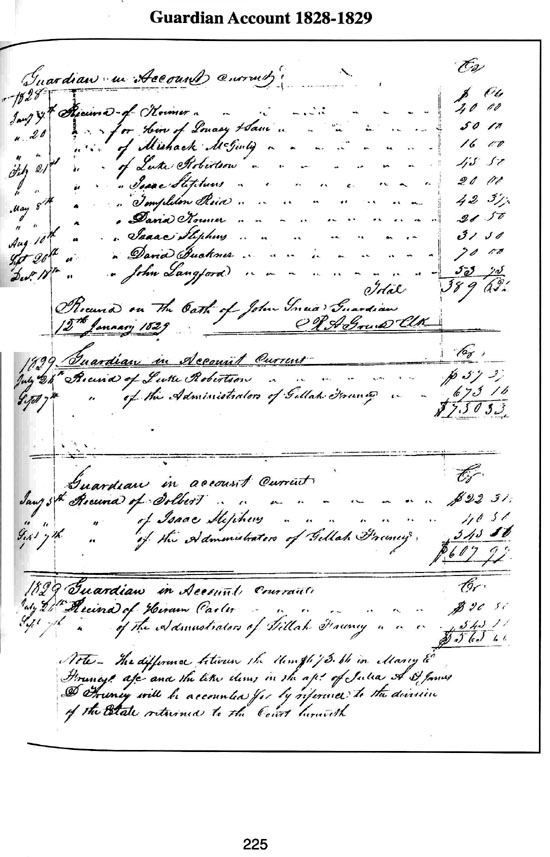 Guardian Account 1828-1829
Guardian in Account Current Cr
1828
Jany 4th Received of Kromer " " " 40 00
" 20 " " for hire of & Sam " " 50 00
" " " " of Mishack McGinty " " 16 00
Feby 21st " " of Luke Robertson " " 45 50
" " " " Isaac Stephens " " 20 00
May 8th " " Templeton Reid " " 42 37½
" " " " David Kromer " " 20 50
Aug 10th " " Isaac Stephens " " 31 50
Sept 20th " " David Buckner " " 70 00
Decr. 18th " " John Langford " " 53 75
Total 389 62½
Received on the Oath of John Guardian
12th January 1829 R A Greene Clk
1829 Guardian in Account Current Cr.
July 26th Received of Luke Robertson " " $57
Sept 7th " of the Administrators of Gillah " " 673 16
Guardian in account Current Cr
Jany 5th Received of Tolbert " " $22
" " " of Isaac Stephens " " 40 50
Sept 7th " of the Administrators of Gillah 545
$607
1829 Guardian in Account Courrant Cr.
July 26th Recived of Hiram Carter " " $20
Sept 7th " of the Administrators of Gillah " " 545
$565
Note – The difference between the item 673.66 in Marcy E
a/c and the like items in the apt of Julia A & James
D will be accounted for by reference to the division
of the Estate returned to the Court herewith
225